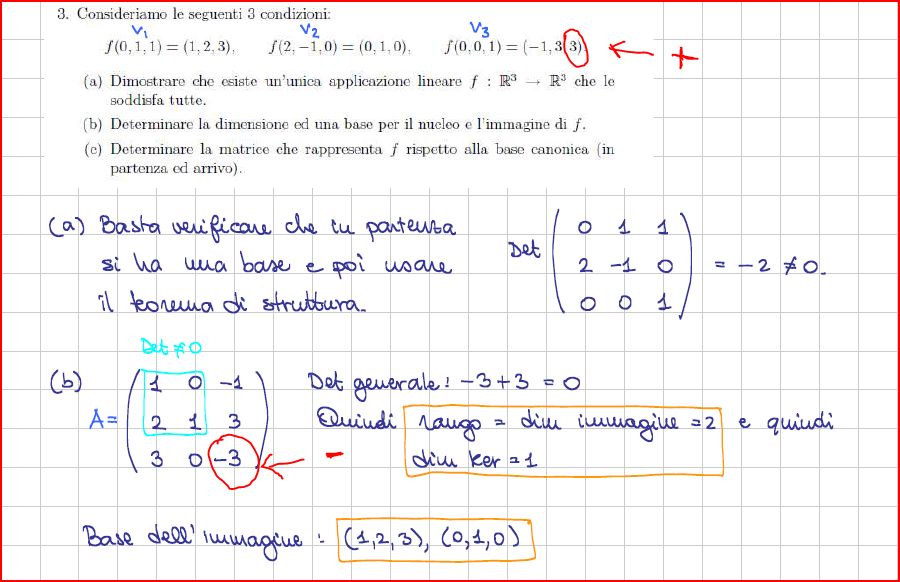 3. Consideriamo le seguenti 3 condizioni:
V1 V2 V3
f(0, 1, 1) = (1, 2, 3), f(2, −1, 0) = (0, 1, 0), f(0, 0, 1) = (−1, 3 3). ← +
(a) Dimostrare che esiste un'unica applicazione lineare f : ℝ³ → ℝ³ che le
soddisfa tutte.
(b) Determinare la dimensione ed una base per il nucleo e l'immagine di f.
(c) Determinare la matrice che rappresenta f rispetto alla base canonica (in
partenza ed arrivo).
(a) Basta verificare che in partenza
si ha una base e poi usare
il teorema di struttura.
Det
0 1 1
2 -1 0 = -2 ≠ 0.
0 0 1
Det ≠ 0
(b) 1 0 -1 Det generale: -3+3 = 0
A = 2 1 3 Quindi rango = dim immagine = 2 e quindi
3 0 -3 ← - dim ker = 1
Base dell'immagine : (1,2,3), (0,1,0)